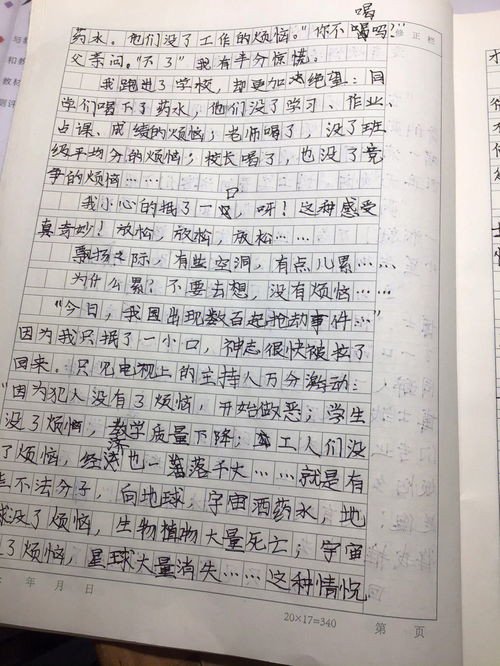 喝
药水。他们没了工作的烦恼。"你不喝吗?"
修正栏
父亲问。"不了"我有半分惊慌。
我跑进了学校,却更加绝望:同
学们喝下了药水,他们没了学习、作业、
点课、成绩的烦恼;老师喝了,没了班
级平均分的烦恼;校长喝了,也没了竞
争的烦恼……
我小心的抿了一口,呀!这种感受
真奇妙?放松,放松,放松……
飘扬之际,有些空洞,有点儿累……
为什么累?不要去想,没有烦恼……
"今日,我国出现数百起抢劫事件…"
因为我只抿了一小口,神志很快被拉了
回来。只见电视上的主持人万分激动:
"因为犯人没有了烦恼,开始做恶;学生
没了烦恼,教学质量下降;工人们没
了烦恼,经济也一落千丈……就是有
不法分子,向地球,宇宙洒药水,地
球没了烦恼,生物植物大量死亡;宇宙
了烦恼,星球大量消失……这种情况
年 月 日
20×17=340
第 页